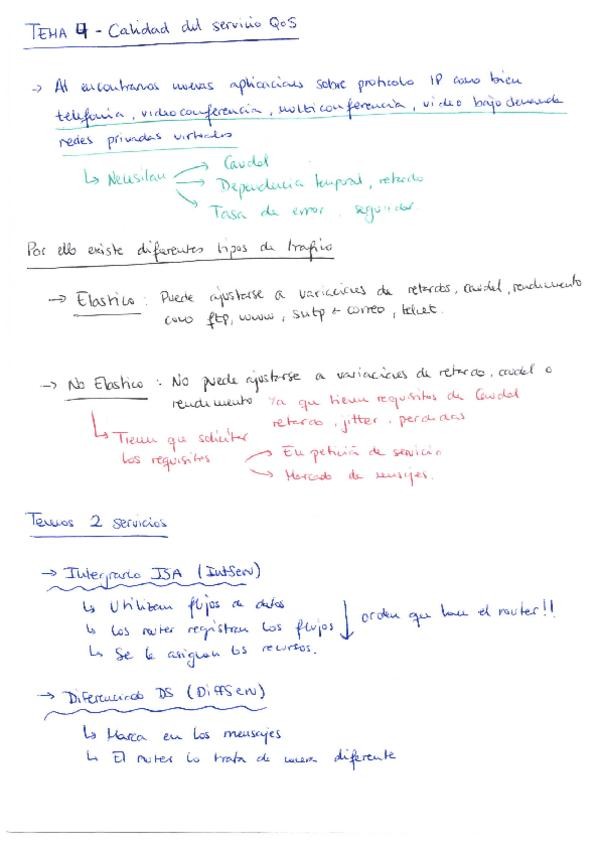 TEMA 4 - Calidad del servicio QoS
→ Al encontrarnos nuevas aplicaciones sobre protocolo IP como bien
telefonia, videoconferencia, multiconferencia, video bajo demanda
redes privadas virtuales
↳ Necesitan → Caudal
→ Dependencia temporal, retardo
→ Tasa de error, seguridad
Por ello existe diferentes tipos de trafico
→ Elastico : Puede ajustarse a variaciones de retardos, caudal, rendimiento
como ftp, www, smtp + correo, telnet.
→ No Elastico : No puede ajustarse a variaciones de retardo, caudal o
rendimiento Ya que tienen requisitos de Caudal
retardo, jitter, perdidas
↳ Tienen que solicitar
los requisitos → En petición de servicio
→ Marcado de mensajes.
Temos 2 servicios
→ Integrado ISA (IntServ)
↳ Utilizan flujos de datos
↳ Los router registran los flujos ↓ orden que hace el router!!
↳ Se le asignan los recursos.
→ Diferenciado DS (DiffServ)
↳ Marca en los mensajes
↳ El router lo trata de manera diferente